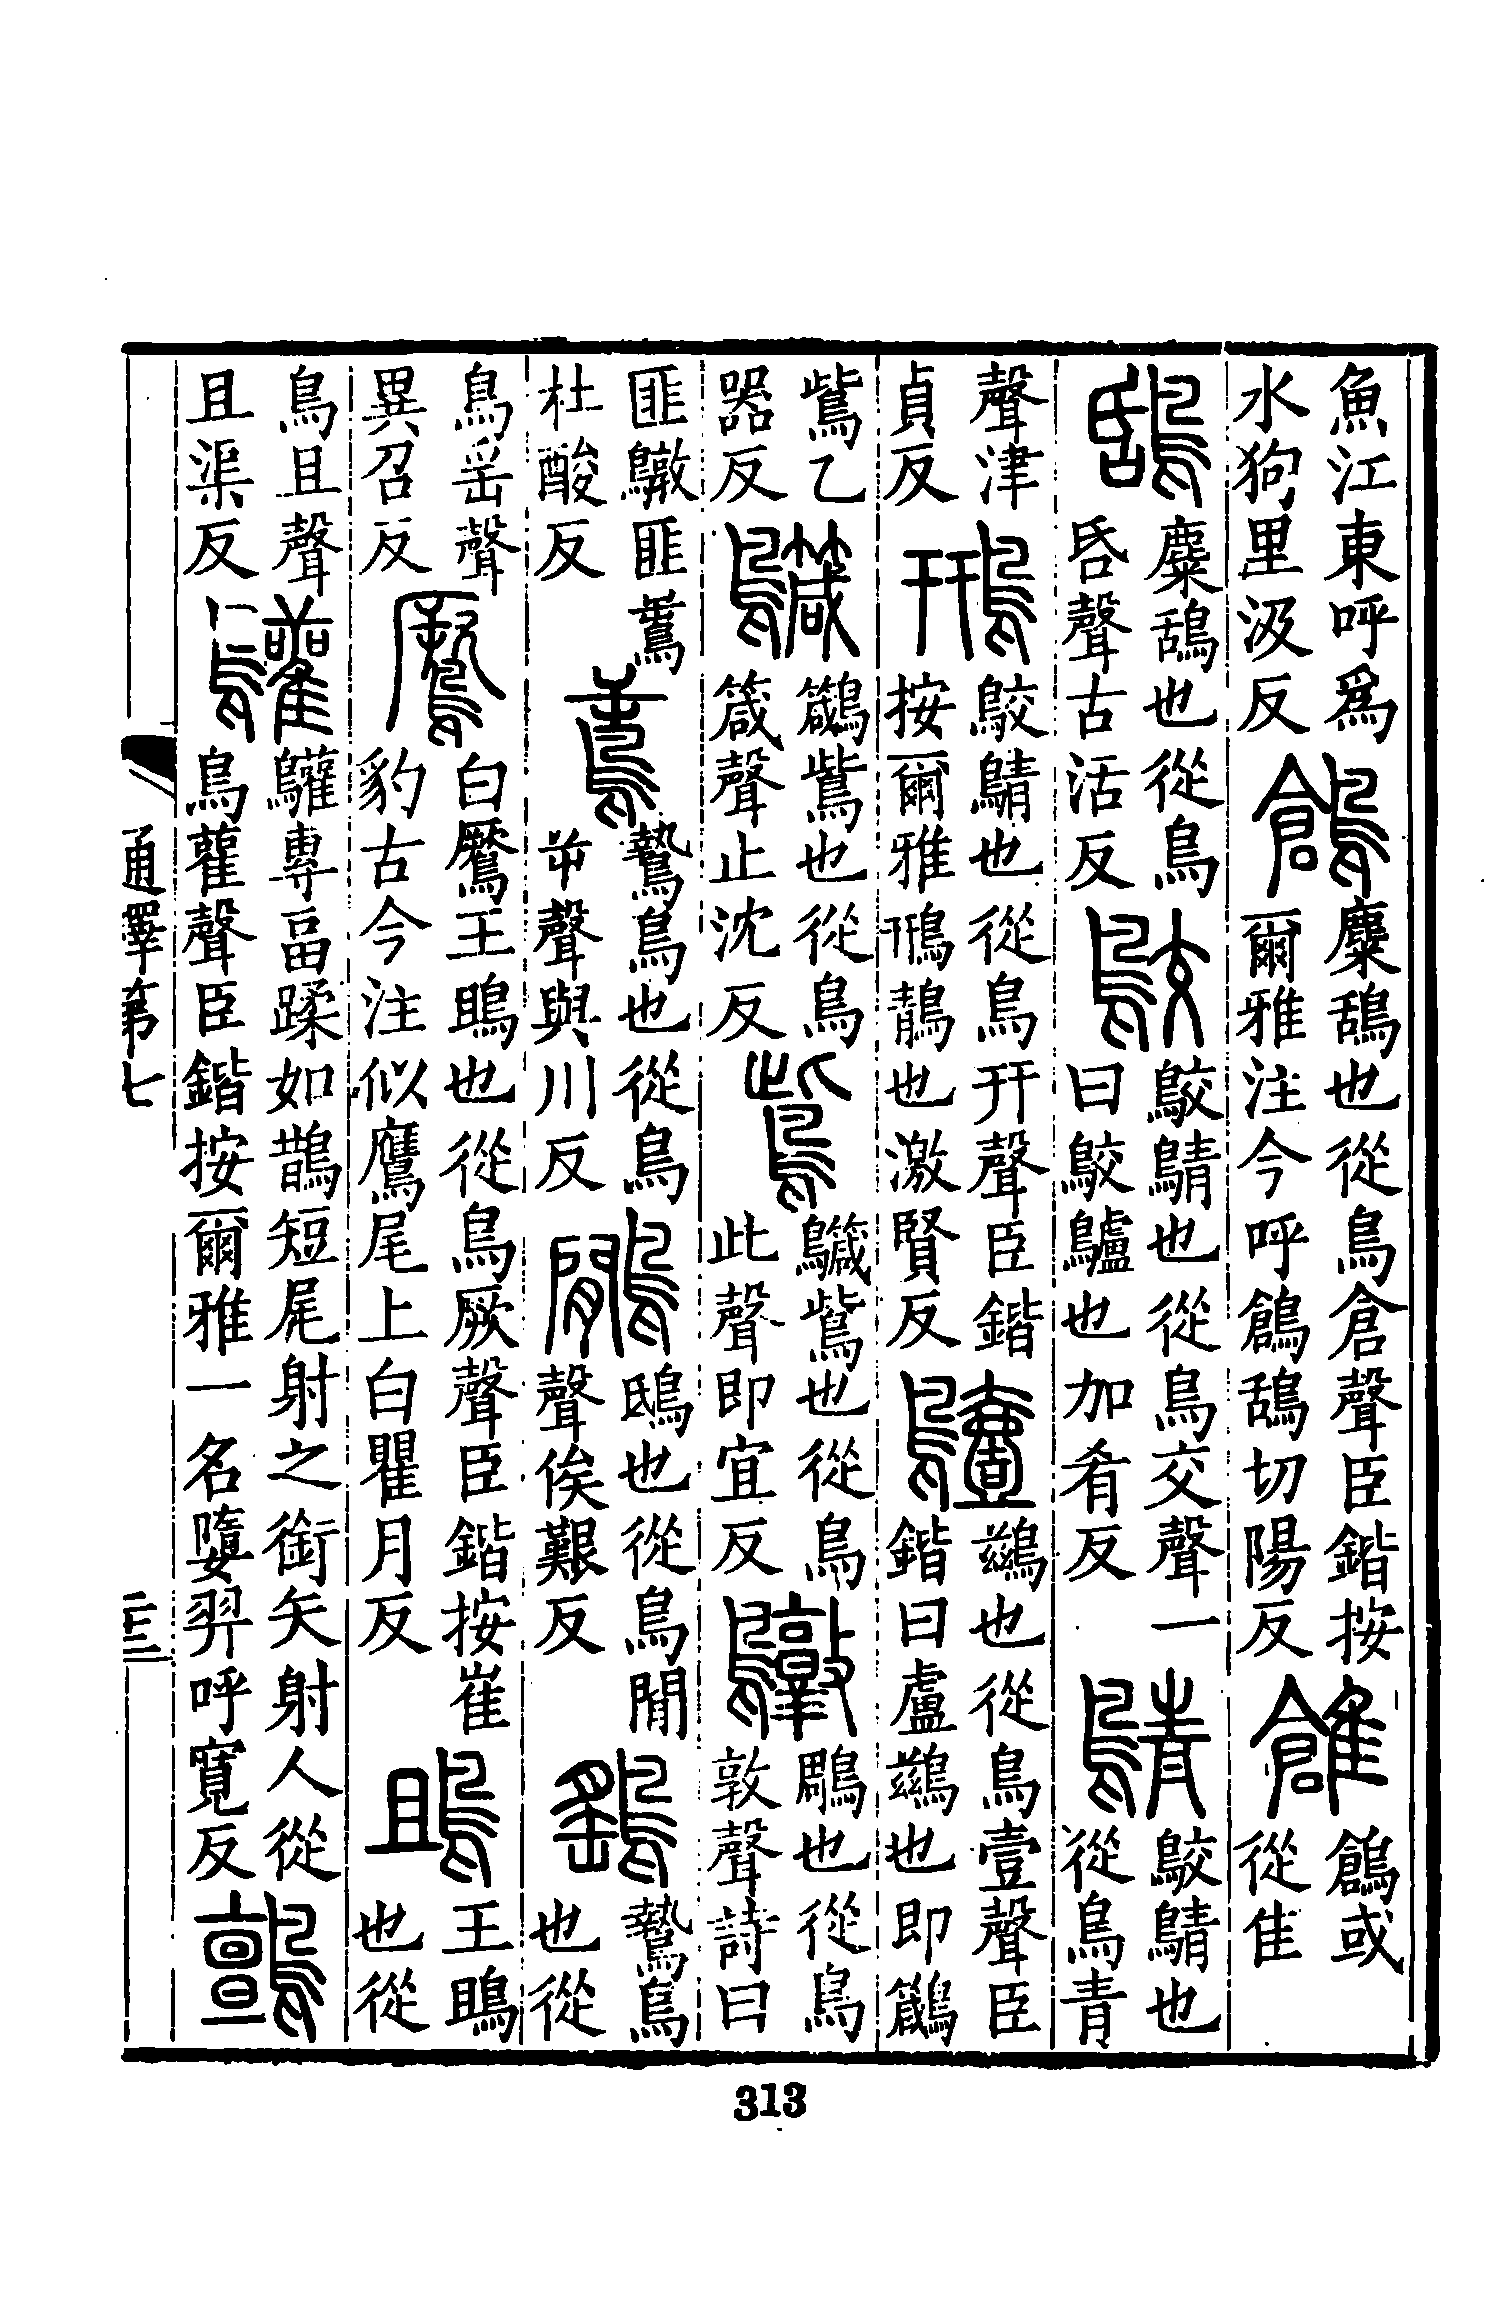 魚江東呼爲
水狗里汲反
鶬
麋鴰也從鳥倉聲臣鍇按
爾雅注今呼鶬鴰切陽反
鶬或
從隹
鴰
麋鴰也從鳥
昏聲古活反
鵁
鵁鶄也從鳥交聲一
曰鵁鸕也加肴反
鶄
鵁鶄也
從鳥青
聲津
貞反
鳽
鵁鶄也從鳥幵聲臣鍇
按爾雅鳽鶄也激賢反
鷧
鷀也從鳥壹聲臣
鍇曰盧鷀也即䲴
鴜乙
器反
䲴
䲴鴜也從鳥
箴聲止沈反
鴜
䲴鴜也從鳥
此聲即宜反
鷻
鵰也從鳥
敦聲詩曰
匪鷻匪鳶
杜酸反
鳶
鷙鳥也從鳥
屰聲與川反
鷴
鴟也從鳥閒
聲俟艱反
鷂
鷙鳥
也從
鳥䍃聲
異召反
鷢
白鷢王鴡也從鳥厥聲臣鍇按崔
豹古今注似鷹尾上白瞿月反
鴡
王鴡
也從
鳥且聲
且渠反
鸛
鸛專畐蹂如鵲短尾射之銜矢射人從
鳥雚聲臣鍇按爾雅一名墮羿呼寬反
鸇
通釋第七
313